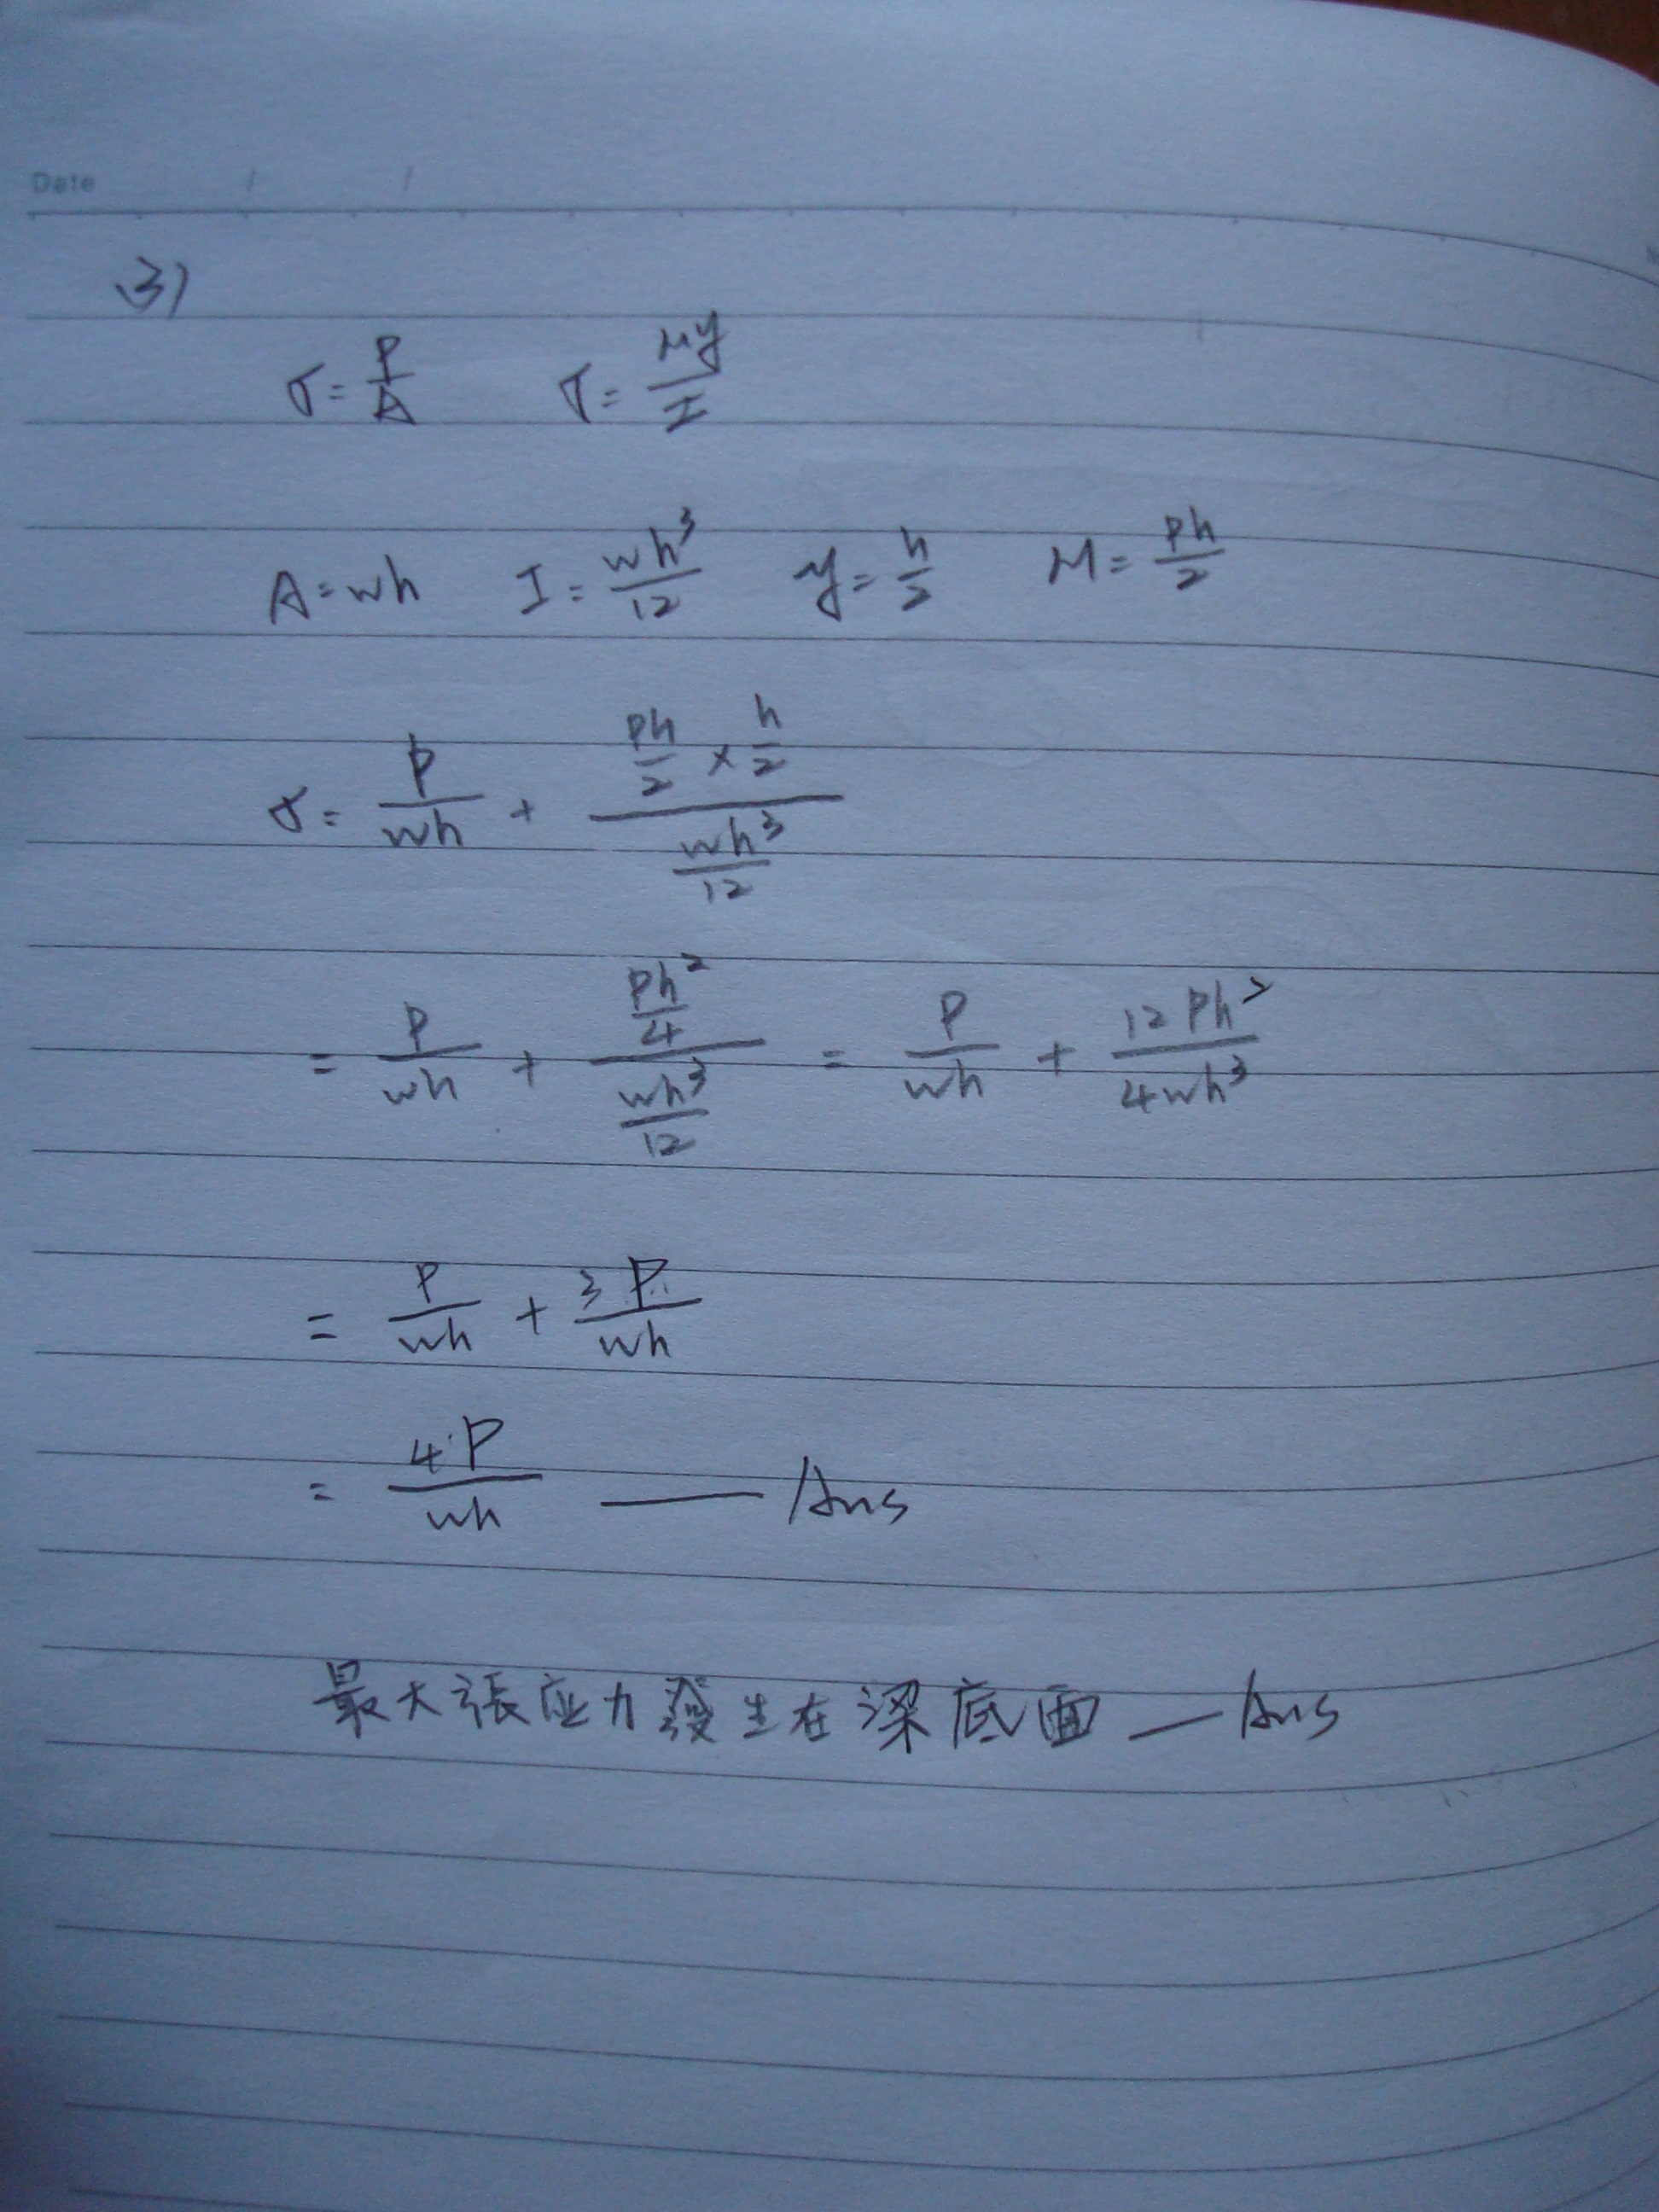 Date / /
3)
σ = P/A σ = My/I
A = wh I = wh³/12 y = h/2 M = Ph/2
σ = P/wh + (Ph/2 × h/2)/(wh³/12)
= P/wh + (Ph²/4)/(wh³/12) = P/wh + 12Ph²/4wh³
= P/wh + 3P/wh
= 4P/wh — Ans
最大張应力發生在梁底面 — Ans